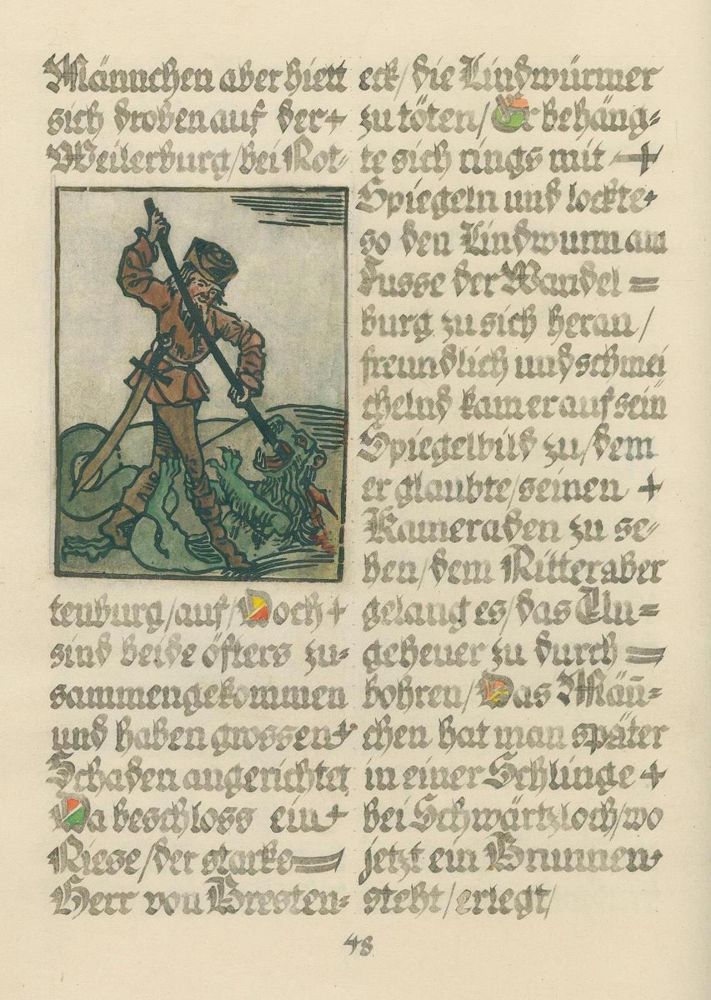 Männchen aber hielt
sich droben auf der+
Weilerburg/bei Rot-
tenburg/auf/Doch+
sind beide öfters zu-
sammengekommen
und haben grossen+
Schaden angerichtet
Da beschloss ein+
Riese/der starke=
Herr von Bresten-
eck/die Lindwürmer
zu töten/Er behäng-
te sich rings mit+
Spiegeln und lockte+
so den Lindwurm am
Fusse der Wandel=
burg zu sich heran/
freundlich und schmei
chelnd kam er auf sein
Spiegelbild zu/dem
er glaubte/seinen+
Kameraden zu se-
hen/dem Ritter aber
gelang es/das Un=
geheuer zu durch=
bohren/Das Män̄=
chen hat man später
in einer Schlinge+
bei Schwärtzloch/wo
jetzt ein Brunnen+
steht/erlegt/
48